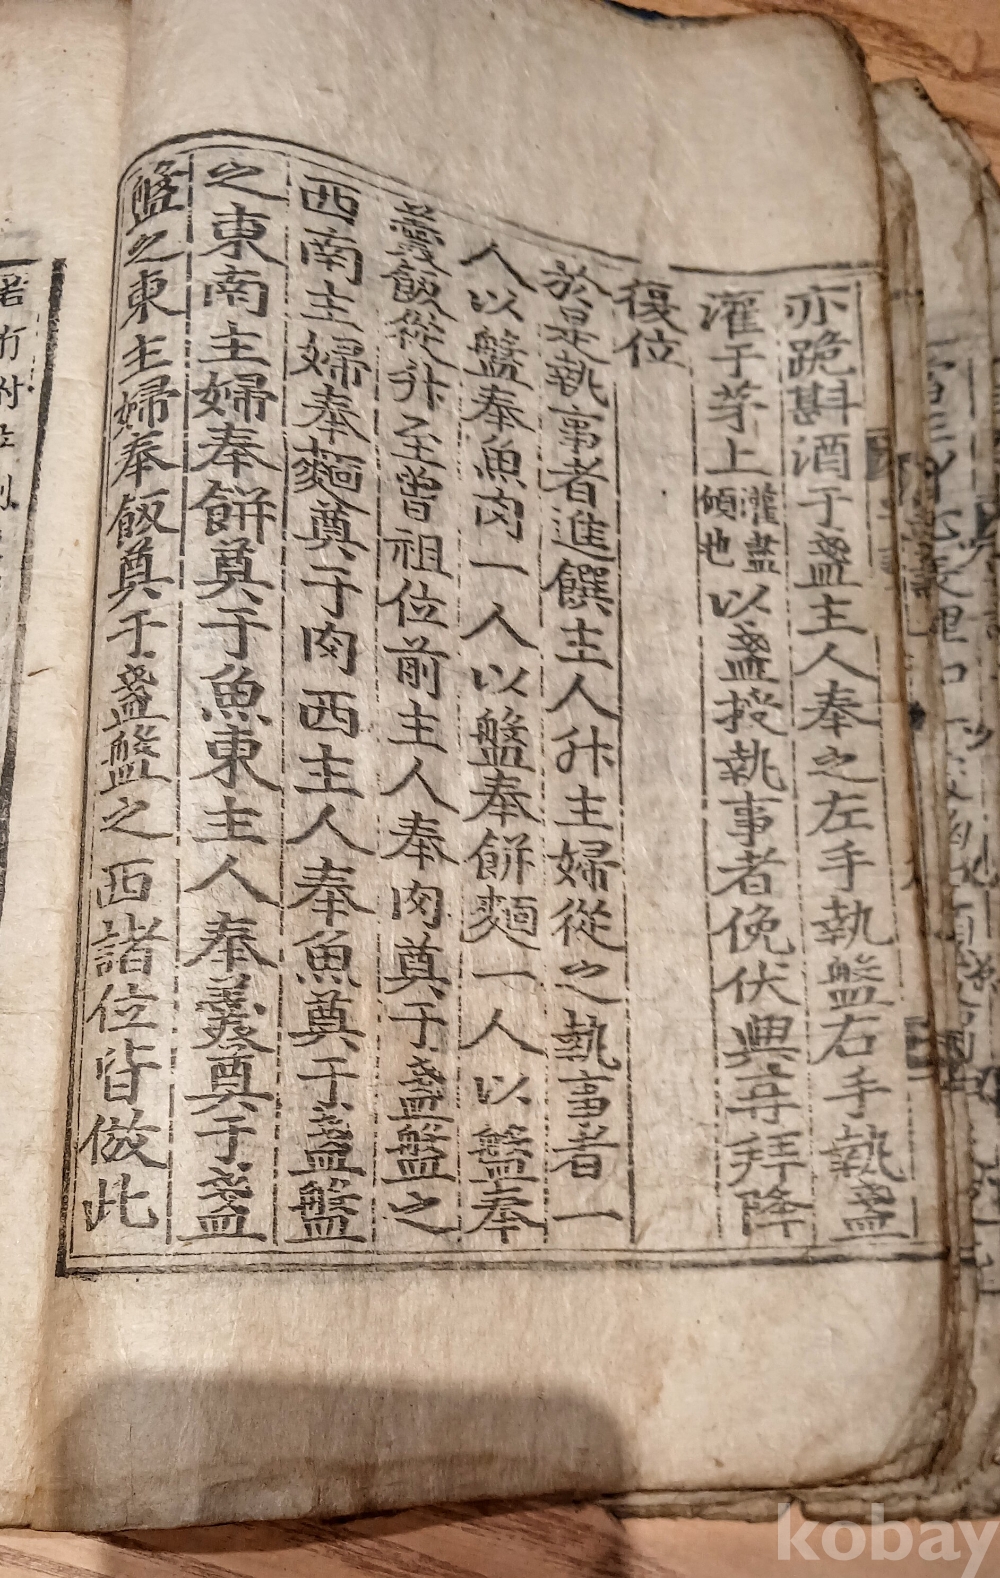 亦跪斟酒于盞主人奉之左手執盤右手執盞
灌于茅上灌盡傾也以盞授執事者俛伏興再拜降
復位
於是執事者進饌主人升主婦從之執事者一
人以盤奉魚肉一人以盤奉餠麵一人以盤奉
羹飯從升至曾祖位前主人奉肉奠于盞盤之
西南主婦奉麵奠于肉西主人奉魚奠于盞盤
之東南主婦奉餠奠于魚東主人奉羹奠于盞
盤之東主婦奉飯奠于盞盤之西諸位皆倣此
kobay